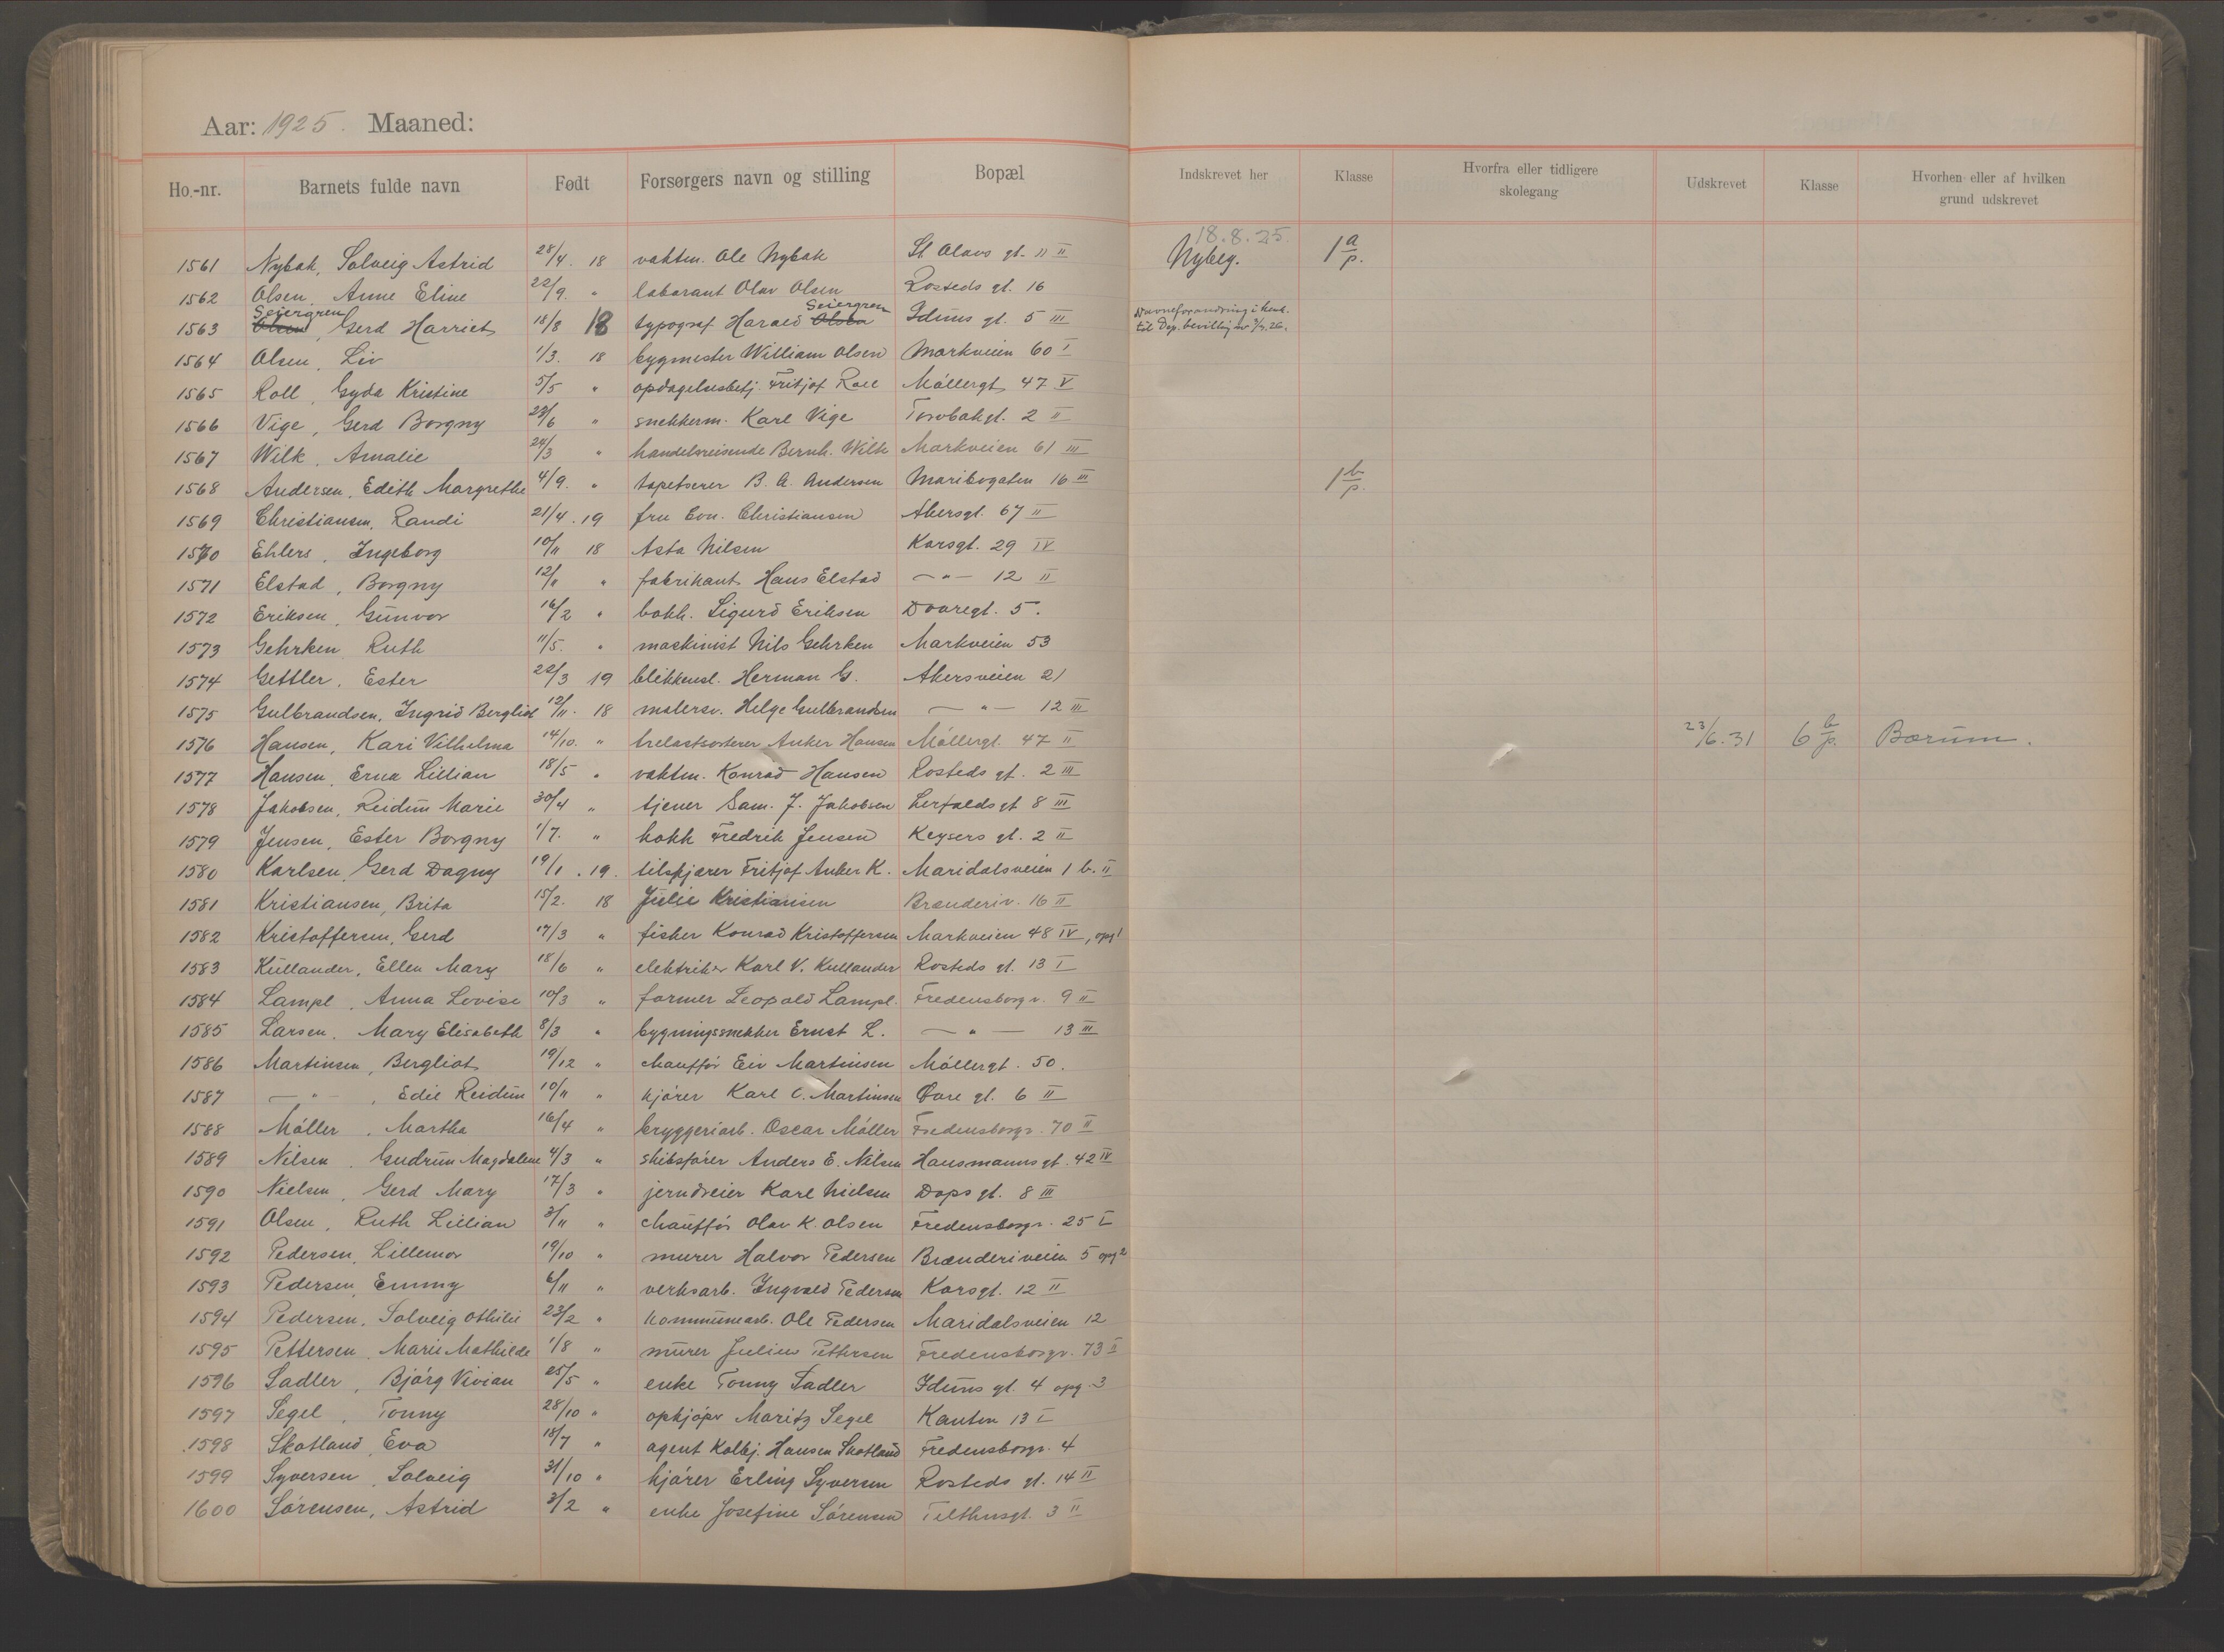 Aar: 1925. Maaned:
Ho.-nr. Barnets fulde navn Født Forsørgers navn og stilling Bopæl Indskrevet her Klasse Hvorfra eller tidligere skolegang Udskrevet Klasse Hvorhen eller af hvilken grund udskrevet
18.8.25
1561 Nybak, Solveig Astrid 28/4. 18 vaktm. Ole Nybak St. Olavs gt. 11 II Nybeg. 1 a/p.
1562 Olsen, Anne Eline 22/9. " laborant Olav Olsen Rosteds gt. 16
Seiergren Seiergren
1563 Olsen, Gerd Harriet 18/8 18 typograf Harald Olsen Iduns gt. 5 III Navneforandring i henh. til Dep. bevillig av
1564 Olsen, Liv 1/3. 18 bygmester William Olsen Markveien 60 I
1565 Roll, Gyda Kristine 5/5 " opdagelsesbetj. Fritjof Roll Möllergt. 47 V
1566 Vige, Gerd Borgny 23/6 " snekkerm. Karl Vige Torvbakgt. 2 II
1567 Wilk, Amalie 24/3 " handelsreisende Bernh. Wilk Markveien 61 III
1568 Andersen, Edith Margrethe 4/9. " tapetserer B. A. Andersen Maribogaten 16 III 1 b/p.
1569 Christiansen, Randi 21/4. 19 fru Christiansen Akersgt. 67 II
1570 Ehlers, Ingeborg 10/11 18 Asta Nilsen Korsgt. 29 IV
1571 Elstad, Borgny 12/11 " fabrikant Hans Elstad — " — 12 II
1572 Eriksen, Gunvor 16/2 " bokh. Sigurd Eriksen Doaregt. 5.
1573 Gehrken, Ruth 11/5. " maskinist Nils Gehrken Markveien 53
1574 Gettler, Ester 22/3 19 blikkensl. Herman G. Akersveien 21
1575 Gulbrandsen, Ingrid Bergliot 12/11. 18 malersv. Helge Gulbrandsen — " — 12 III
1576 Hansen, Kari Vilhelma 14/10. " trelastsorterer Anker Hansen Möllergt. 47 II 23/6.31 6 b/p. Bærum.
1577 Hansen, Erna Lillian 18/5 " vaktm. Konrad Hansen Rosteds gt. 2 III
1578 Jakobsen, Reidun Marie 30/4 " tjener Sam. J. Jakobsen Lerfaldsgt 8 III
1579 Jensen, Ester Borgny 1/7. " kokk Fredrik Jensen Keysers gt. 2 II
1580 Karlsen, Gerd Dagny 19/1. 19. tilskjærer Fritjof Anker K. Maridalsveien 1 b. II
1581 Kristiansen, Brita 15/2. 18 Julie Kristiansen Brænderiv. 16 II
1582 Kristoffersen, Gerd 17/3 " fisker Konrad Kristoffersen Markveien 48 IV, opg 1
1583 Kullander, Ellen Mary 18/6 " elektriker Karl V. Kullander Rosteds gt. 13 I
1584 Lampl, Anna Lovise 10/3 " former Leopold Lampl. Fredensborgv. 9 II
1585 Larsen, Mary Elisabeth 8/3 " bygningssnekker Ernst L. — " — 13 III
1586 Martinsen, Bergliot 19/12 " chauffør Eiv Martinsen Möllergt. 50.
1587 — " —, Edil Reidun 10/11 " kjörer Karl C. Martinsen Övre gt. 6 II
1588 Möller, Martha 16/4 " bryggeriarb. Oscar Möller Fredensborgv. 70 II
1589 Nilsen, Gudrun Magdalene 4/3 " skibsfører Anders E. Nilsen Hausmannsgt. 42 IV
1590 Nielsen, Gerd Mary 17/3 " jerndreier Karl Nielsen Dops gt. 8 III
1591 Olsen, Ruth Lillian 3/11 " chauffør Olav K. Olsen Fredensborgv. 25 I
1592 Pedersen, Lillemor 19/10 " murer Halvor Pedersen Brænderiveien 5 opg 2
1593 Pedersen, Emmy 6/11 " verksarb. Ingvald Pedersen Korsgt. 12 II
1594 Pedersen, Solveig Othilie 23/2 " Kommunearb. Ole Pedersen Maridalsveien 12
1595 Pettersen, Marie Mathilde 1/8 " murer Julius Pettersen Fredensborgv. 73 II
1596 Sadler, Björg Vivian 25/5 " enke Tonny Sadler Iduns gt. 4 opg. 3
1597 Segel, Tonny 28/10 " opkjöper Maritz Segel Kanten 13 I
1598 Skotland, Eva 18/7 " agent Kolbj. Hansen Skotland Fredensborgv. 4
1599 Syversen, Solveig 31/10 " kjörer Erling Syversen Rosteds gt. 14 II
1600 Sörensen, Astrid 3/2 " enke Josefine Sörensen Telthusgt. 3 II